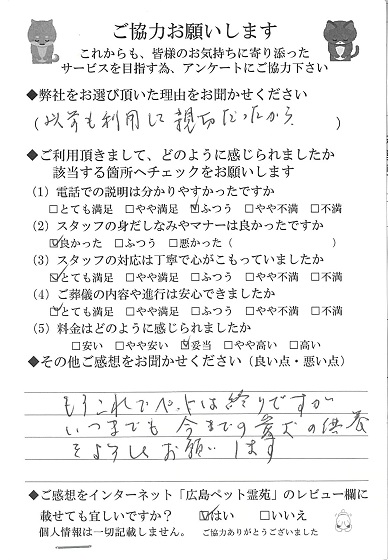 ご協力お願いします
これからも、皆様のお気持ちに寄り添った
サービスを目指す為、アンケートにご協力下さい
◆弊社をお選び頂いた理由をお聞かせください
(以前も利用して親切だったから)
◆ご利用頂きまして、どのように感じられましたか
該当する箇所へチェックをお願いします
(1)電話での説明は分かりやすかったですか
□とても満足 □やや満足 ☑ふつう □やや不満 □不満
(2)スタッフの身だしなみやマナーは良かったですか
☑良かった □ふつう □悪かった( )
(3)スタッフの対応は丁寧で心がこもっていましたか
☑とても満足 □やや満足 □ふつう □やや不満 □不満
(4)ご葬儀の内容や進行は安心できましたか
☑とても満足 □やや満足 □ふつう □やや不満 □不満
(5)料金はどのように感じられましたか
□安い □やや安い ☑妥当 □やや高い □高い
◆その他ご感想をお聞かせください(良い点・悪い点)
もうこれでペットは終りですが
いつまでも今までの愛犬の供養
をよろしくお願いします
◆ご感想をインターネット「広島ペット霊苑」のレビュー欄に
載せても宜しいですか? ☑はい □いいえ
個人情報は一切記載しません。 ご協力ありがとうございました